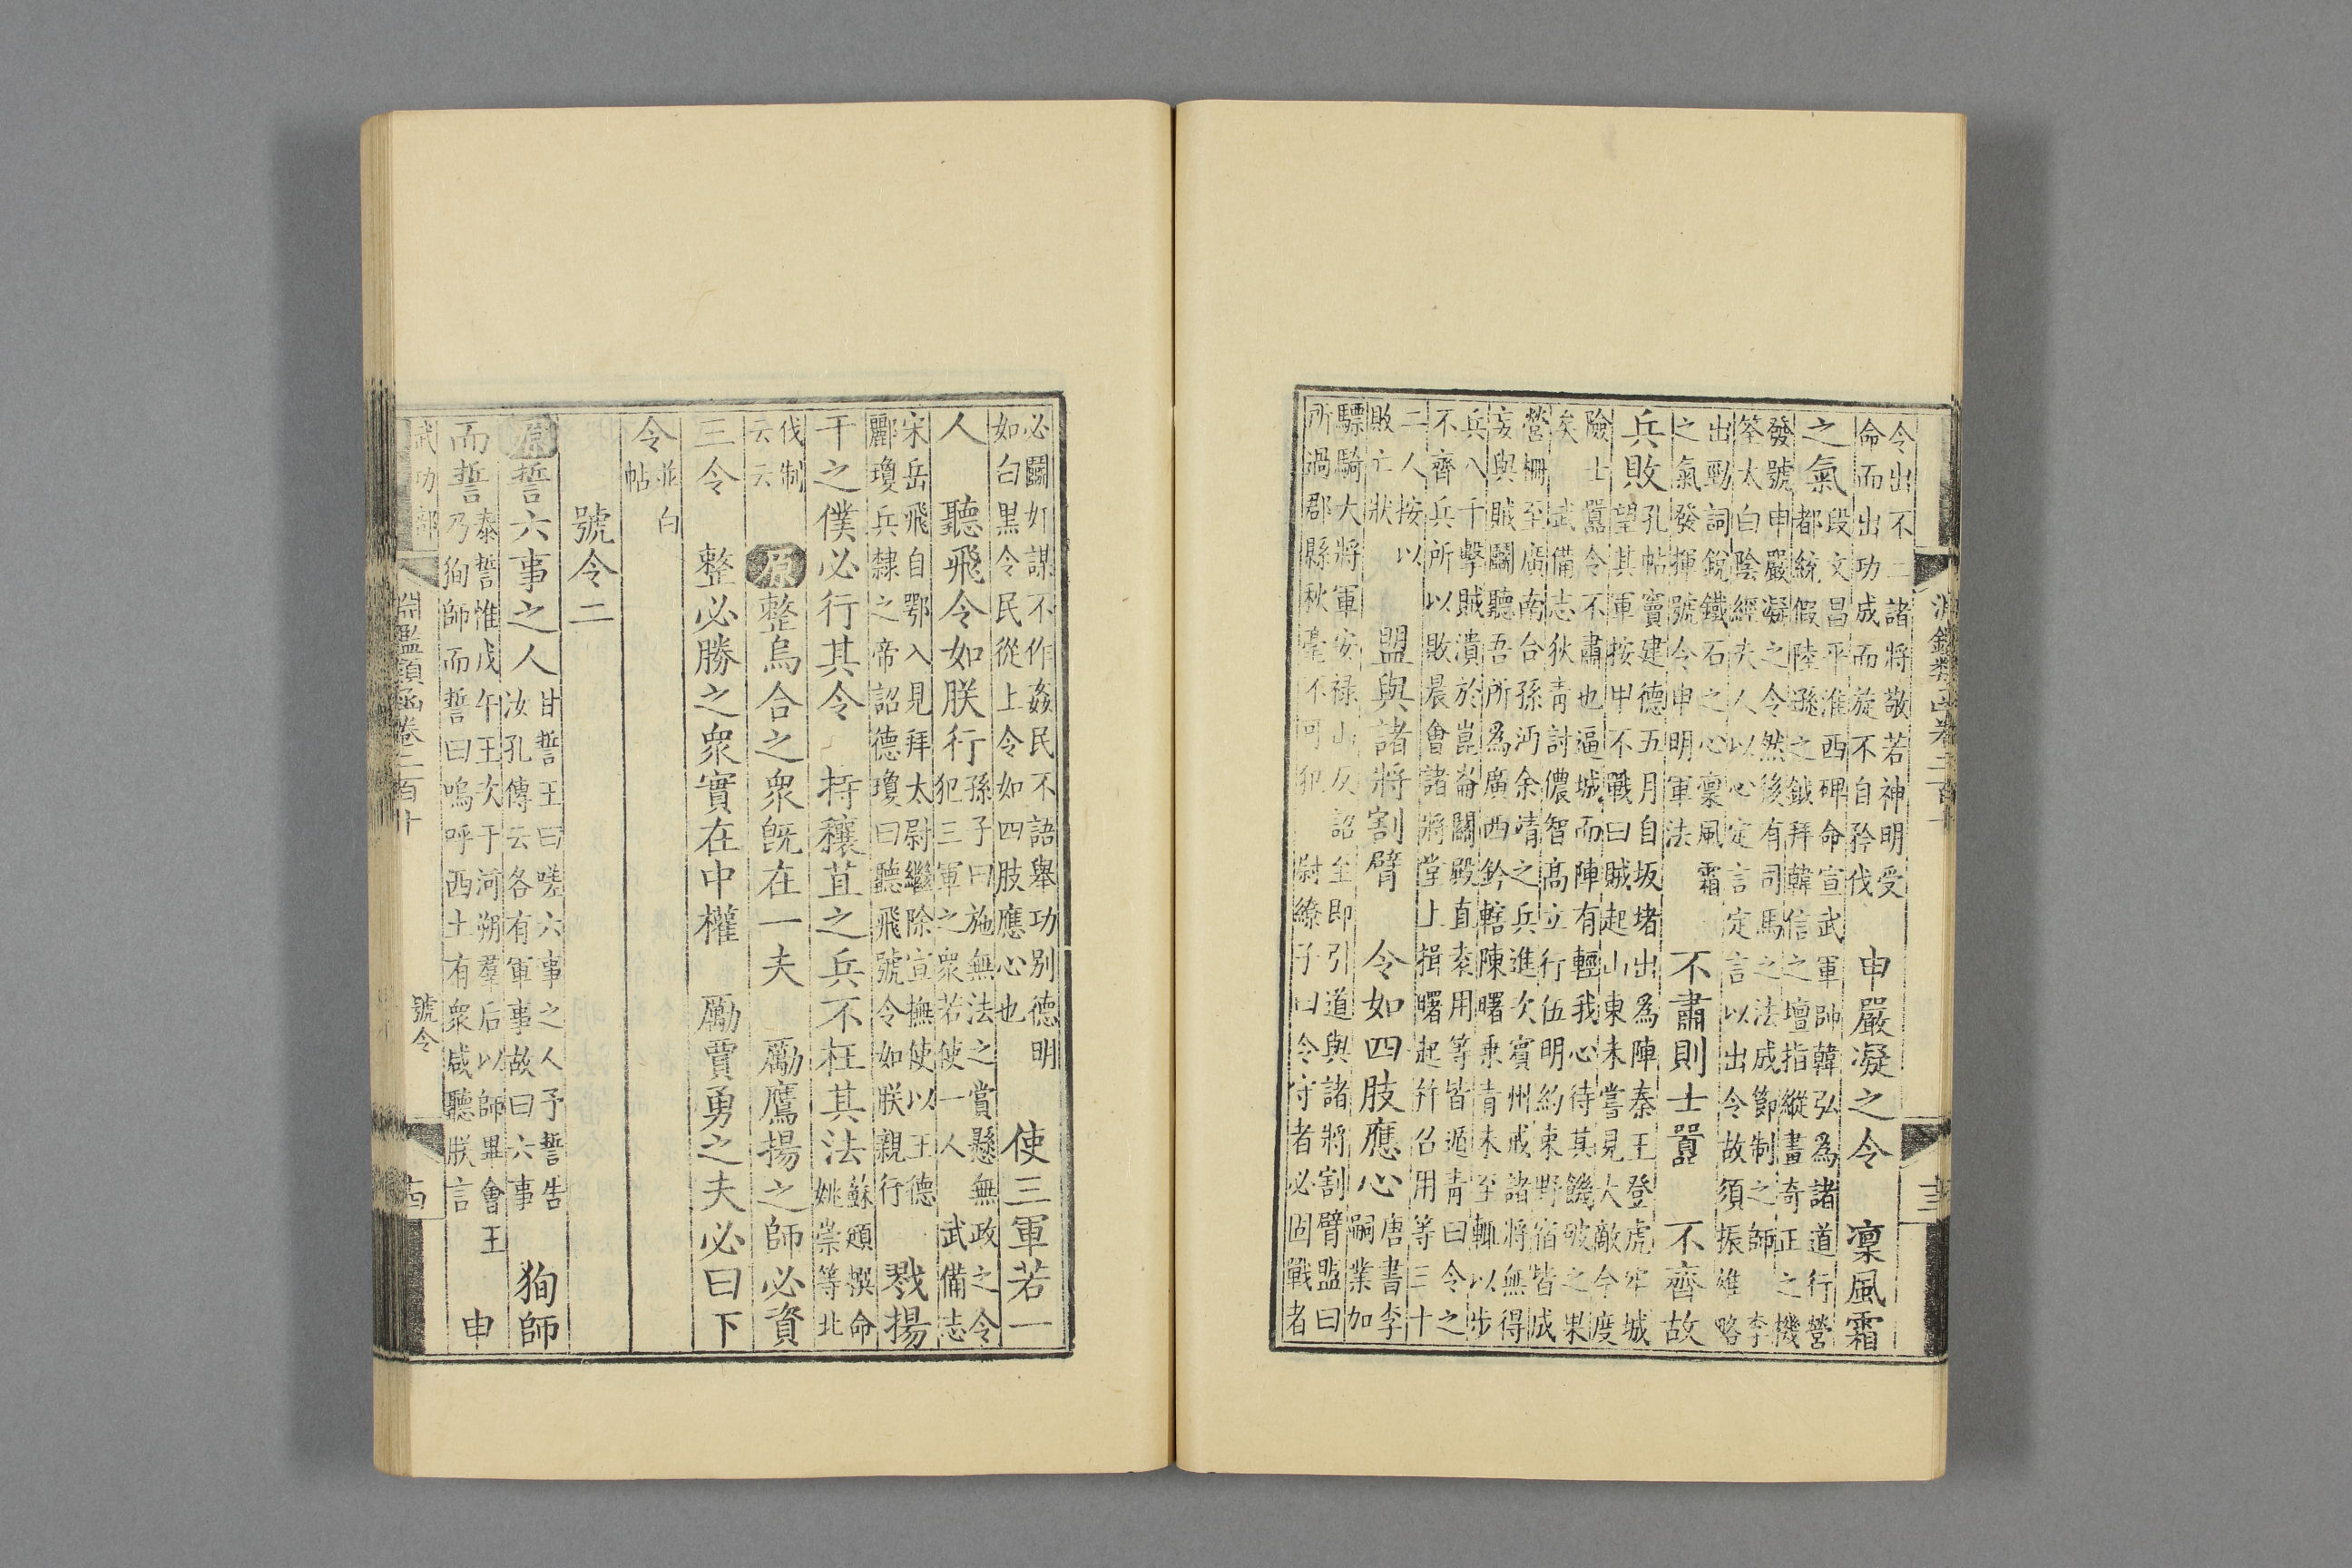 淵鑑類函卷二百十
十三
令出不二諸將敬若神明受命而出功成而旋不自矜伐 申嚴凝之令 凜風霜
之氣 段文昌平淮西碑命宣武軍帥韓弘為諸道行營都統假陸遜之鉞拜韓信之壇指縱畫奇正之機
發號申嚴凝之令然後有司馬之法成節制之師 李筌太白陰經夫人以心定言定言以出令故須振雄略
出勁詞銳鐵石之心凜風霜之氣發揮號令申明軍法 不肅則士囂 不齊故
兵敗 孔帖竇建德五月自坂堵出為陣秦王登虎牢城望其軍按甲不戰曰賊起山東未嘗見大敵今度
險士囂令不肅也逼城而陣有輕我心待其饑破之果矣 武備志狄青討儂智高立行伍明約束野宿皆成
營柵至廣南合孫沔余靖之兵進次賓州戒諸將無得妄與賊鬭聽吾所為廣西鈐轄陳曙乘青未至輒以步
兵八千擊賊潰於崑崙關殿直袁用等皆遁青曰令之不齊兵所以敗晨會諸將堂上揖曙起幷召用等三十
二人按以敗亡狀 盟與諸將割臂 令如四肢應心 唐書李嗣業加
驃騎大將軍安祿山反詔至即引道與諸將割臂盟曰所過郡縣秋毫不可犯 尉繚子曰令守者必固戰者
必鬭奸謀不作姦民不語舉功別德明如白黑令民從上令如四肢應心也 使三軍若一
人 聽飛令如朕行 孫子曰施無法之賞懸無政之令犯三軍之眾若使一人 武備志
宋岳飛自鄂入見拜太尉繼除宣撫使以王德酈瓊兵隸之帝詔德瓊曰聽飛號令如朕親行 戮揚
干之僕必行其令 持穰苴之兵不枉其法 蘇頲撰命姚崇等北
伐制云云 原 整烏合之眾旣在一夫 勵鷹揚之師必資
三令 整必勝之眾實在中權 勵賈勇之夫必曰下
令 並白帖
號令二
原 誓六事之人 甘誓王曰嗟六事之人予誓告汝孔傳云各有軍事故曰六事 狥師
而誓 泰誓惟戊午王次于河朔羣后以師畢會王乃狥師而誓曰嗚呼西土有眾咸聽朕言 申
武功部
淵鑑類函卷二百十
號令
十四